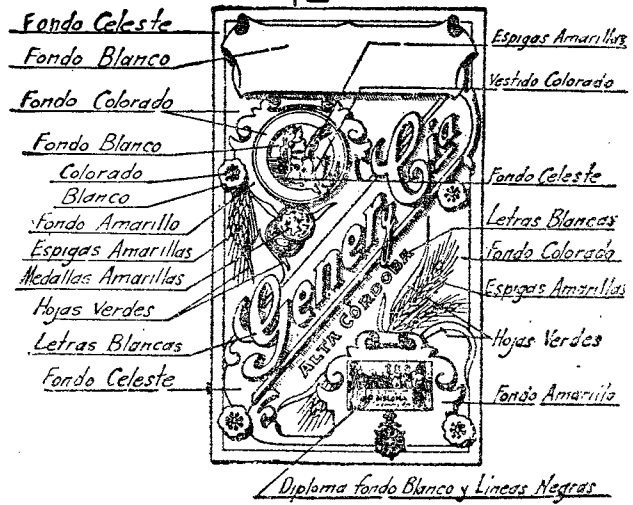 Fondo Celeste
Fondo Blanco
Fondo Colorado
Fondo Blanco
Colorado
Blanco
Fondo Amarillo
Espigas Amarillas
Medallas Amarillas
Hojas Verdes
Letras Blancas
Fondo Celeste
Genery Cia
ALTA CORDOBA
Espigas Amarillas
Vestido Colorado
Fondo Celeste
Letras Blancas
Fondo Colorado
Espigas Amarillas
Hojas Verdes
Fondo Amarillo
Diploma fondo Blanco y Lineas Negras